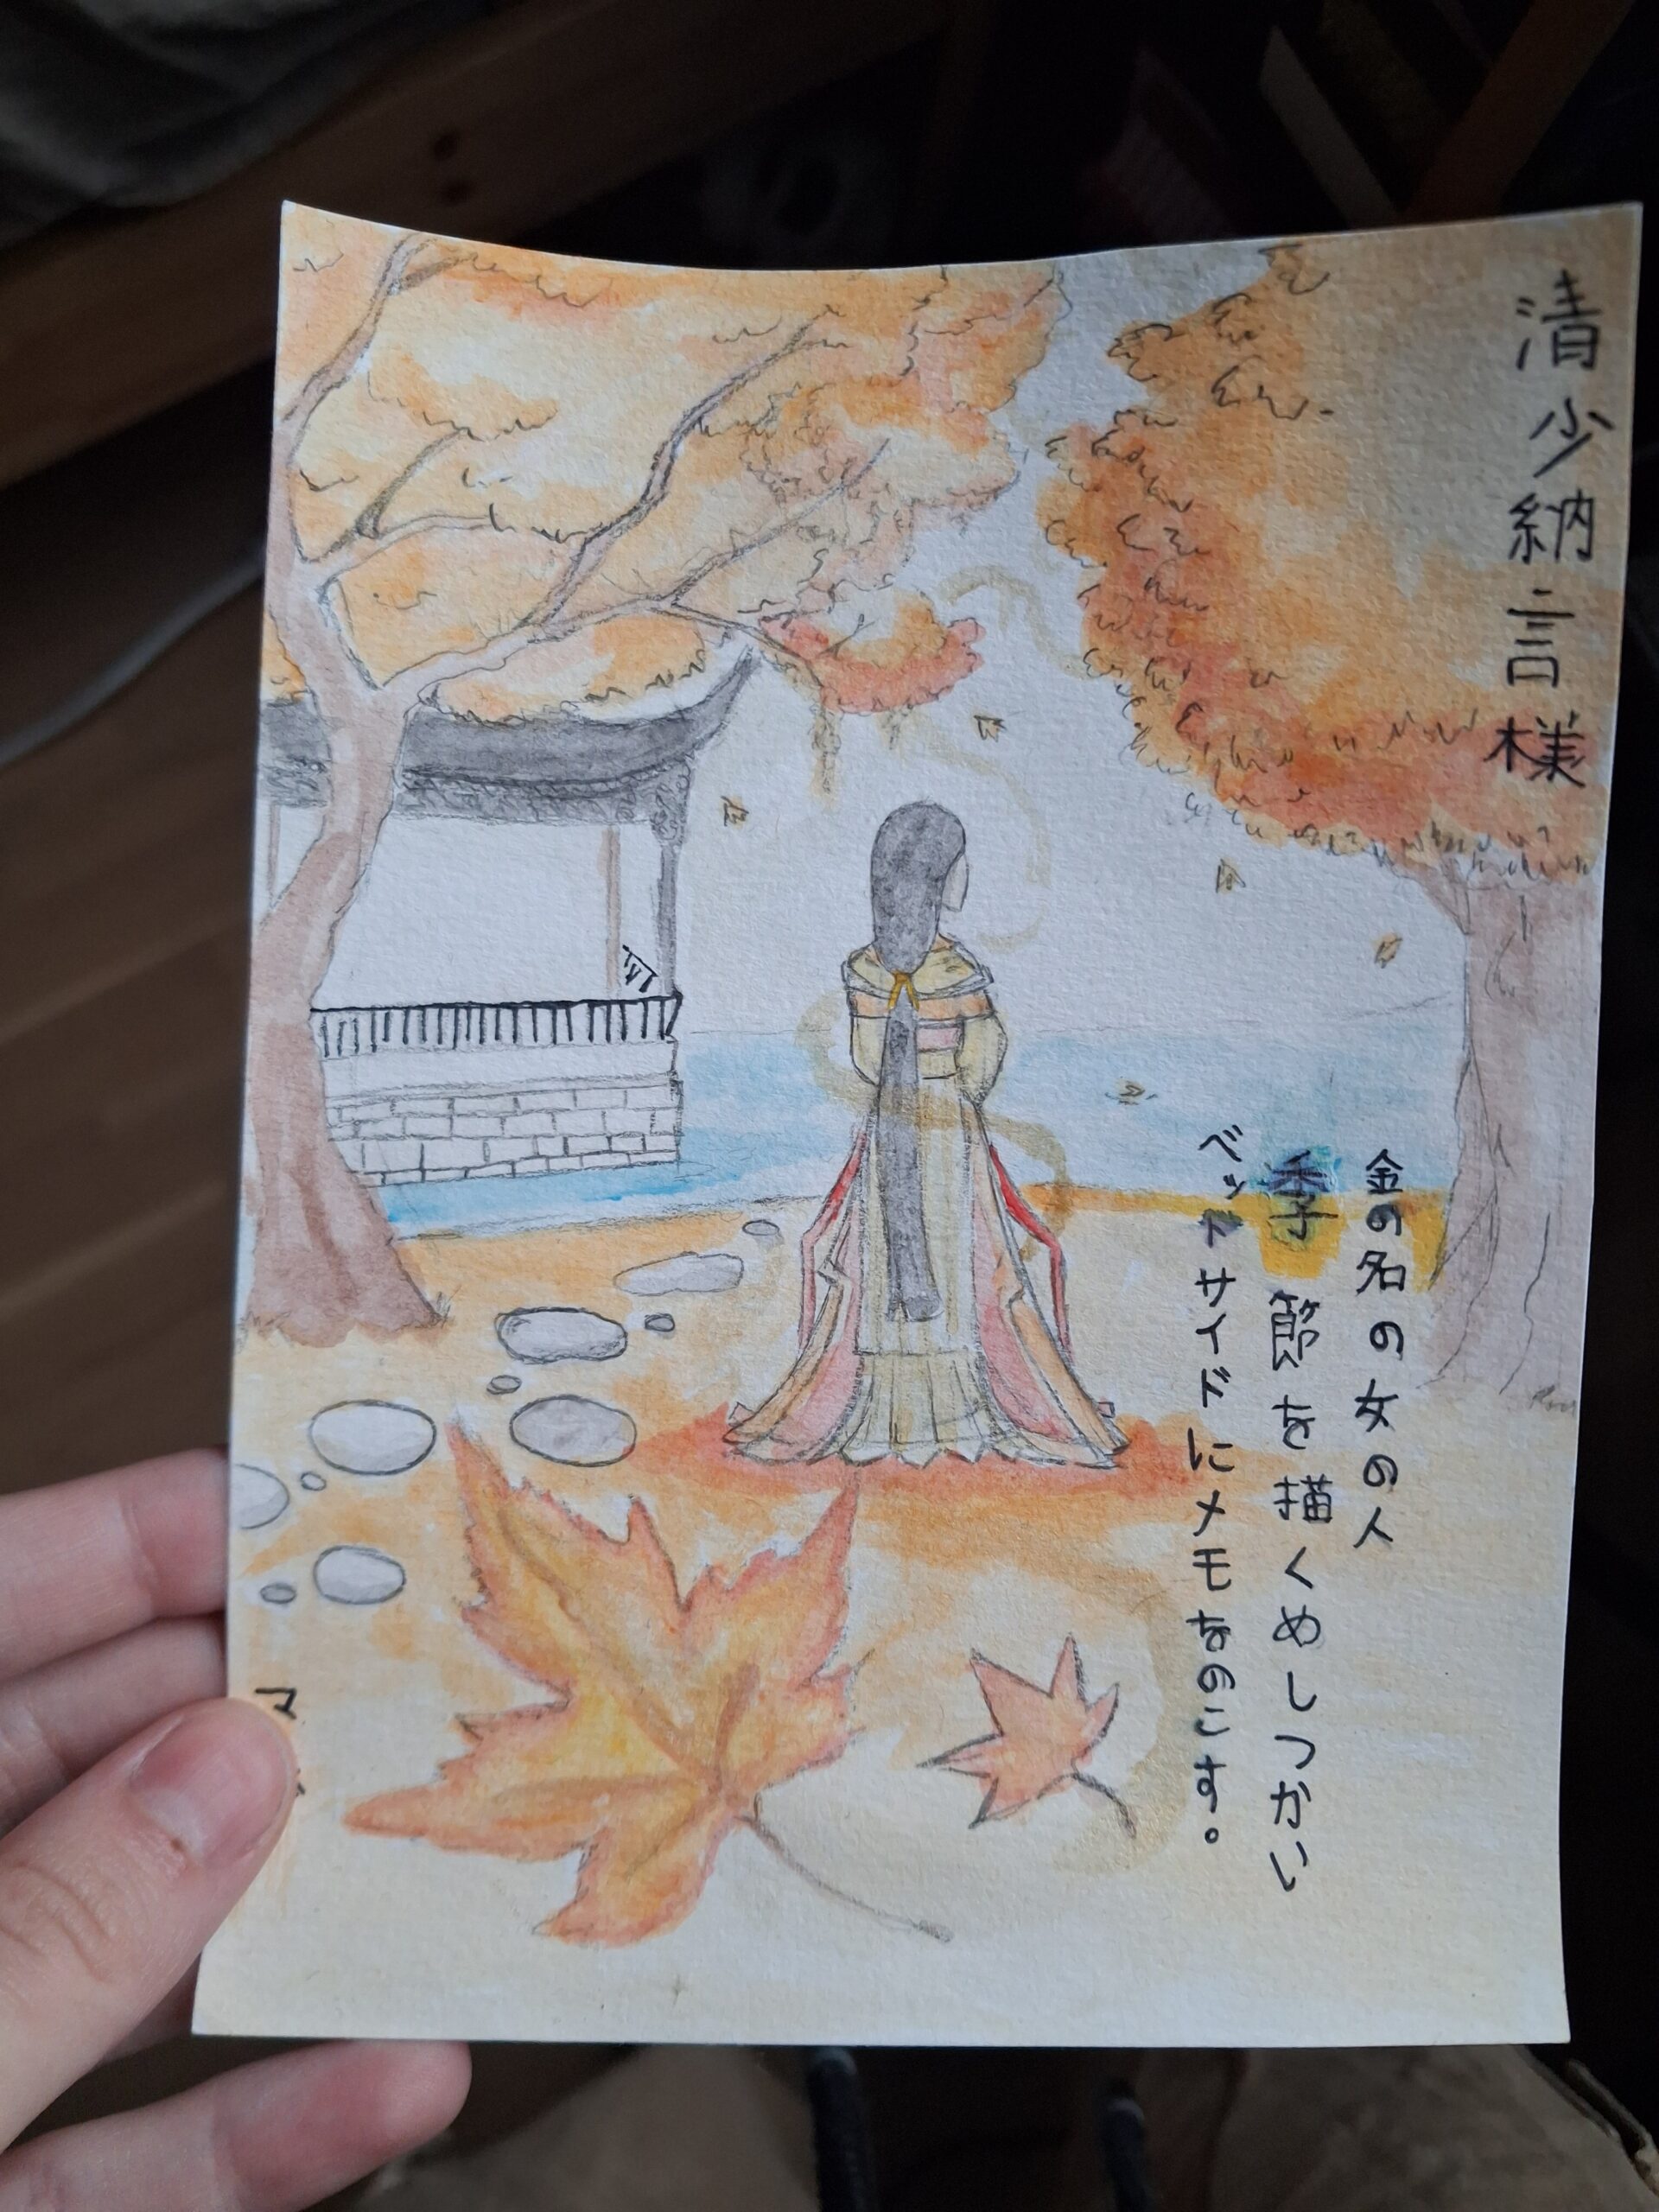 清少納言様
金の名の女の人
季節を描くめしつかい
ベッドサイドにメモをのこす。
マ